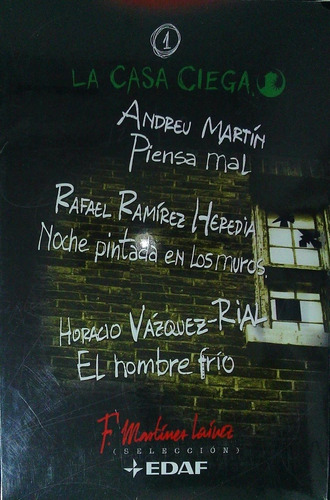 1
LA CASA CIEGA
ANDREU MARTÍN
Piensa mal
RAFAEL RAMÍREZ HEREDIA
Noche pintada en los muros.
HORACIO VÁZQUEZ-RIAL
EL hombre frío
F. Martínez Laínez
(SELECCIÓN)
EDAF